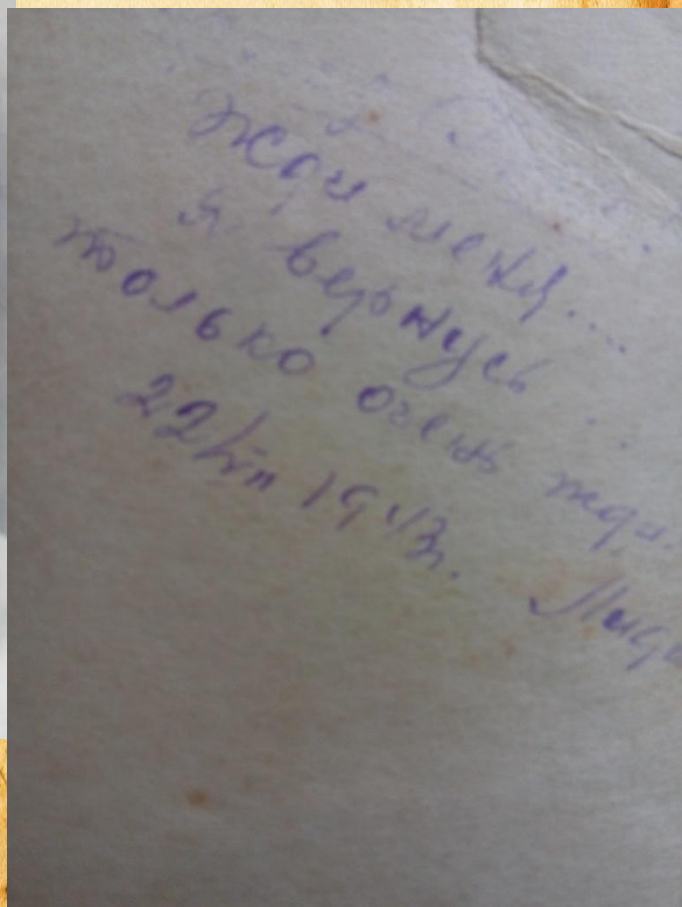 Жди меня....
я вернусь...
только очень жди.
22/VII 1943г. Лида